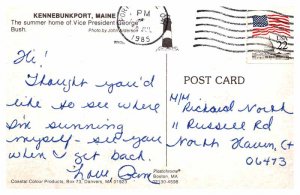 KENNEBUNKPORT, MAINE
The summer home of Vice President George
Bush. Photo by John Anderson
PM
1985
USA
22
Hi!
Thought you'd
like to see where
I'm sunning
myself - see you
when I get back.
Love Pam
POST CARD
M/M Richard North
11 Russell Rd
North Haven, Ct
06473
Coastal Colour Products, Box 73, Danvers, MA 01923
Plastichrome
Boston, MA